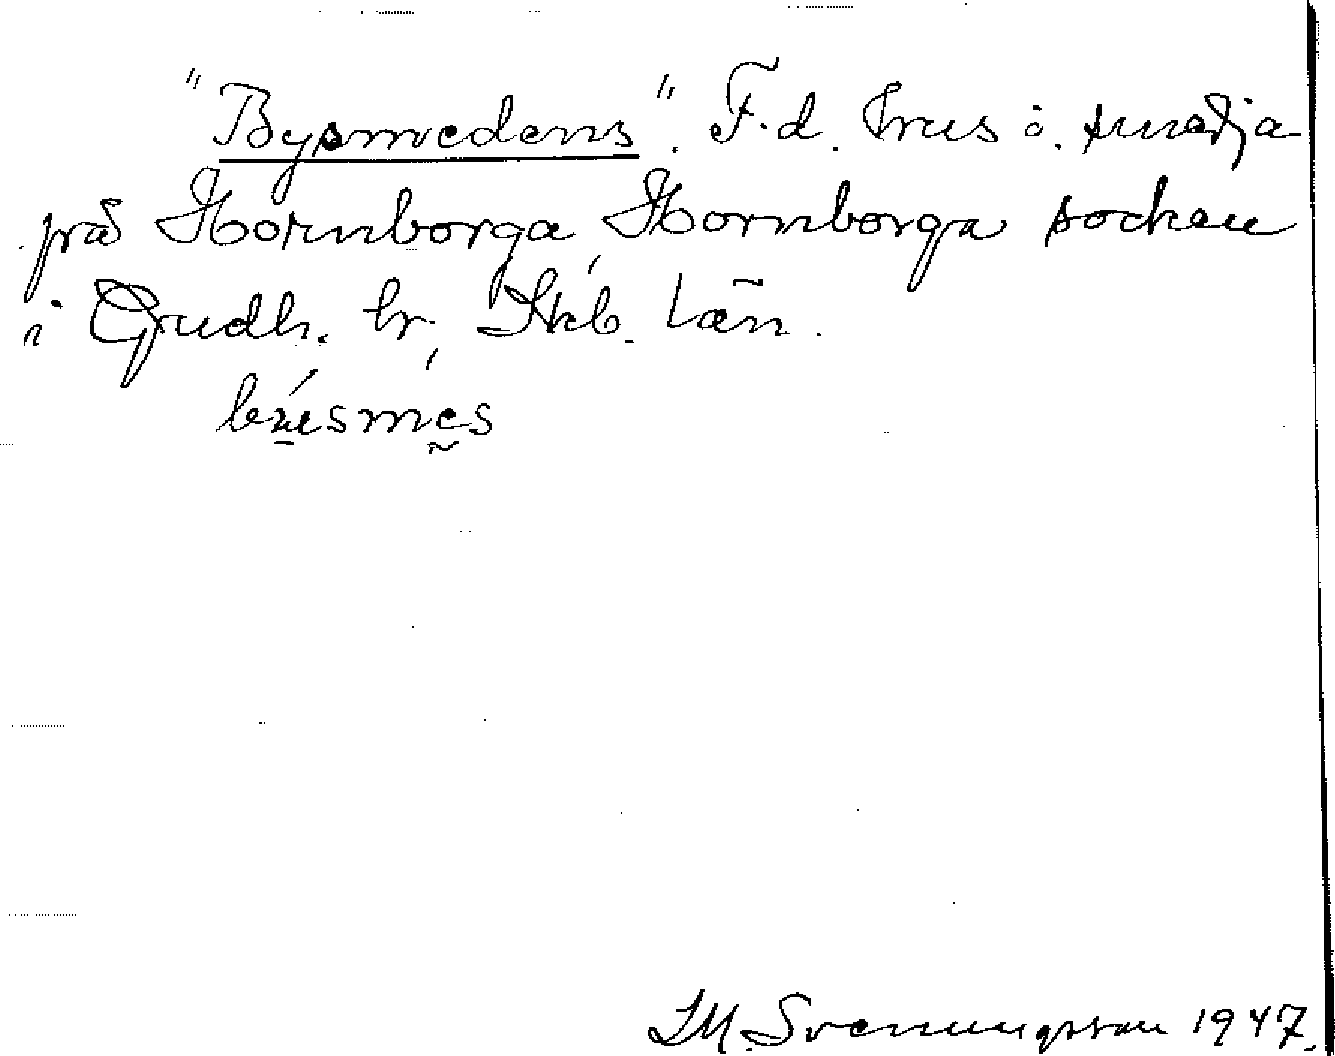 "Bysmedens". F.d. hus o. smedja
på Hornborga, Hornborga socken
i Gudh. hr, Skb. län.
S.M. Svenungsson 1947.